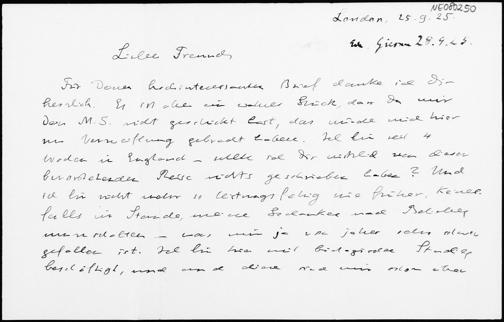 NE080250
London, 25.9.25.
Lieber Freund,
Für Deinen hochinteressanten Brief danke ich Dir
herzlich. Es ist aber ein wahres Glück, dass Du mir
Dein M.S. nicht geschickt hast, das würde mich hier
zur Verzweiflung gebracht haben. Ich bin seit 4
Wochen in England – sollte ich Dir von dieser
bevorstehenden Reise nichts geschrieben haben? Und
ich bin nicht mehr so leistungsfähig wie früher, keines
falls im Stande, meine Gedanken nach Belieben
umzuschalten – was mir ja von jeher schwer
gefallen ist. Ich bin hier mit Studien
beschäftigt, und diese sind mir schon